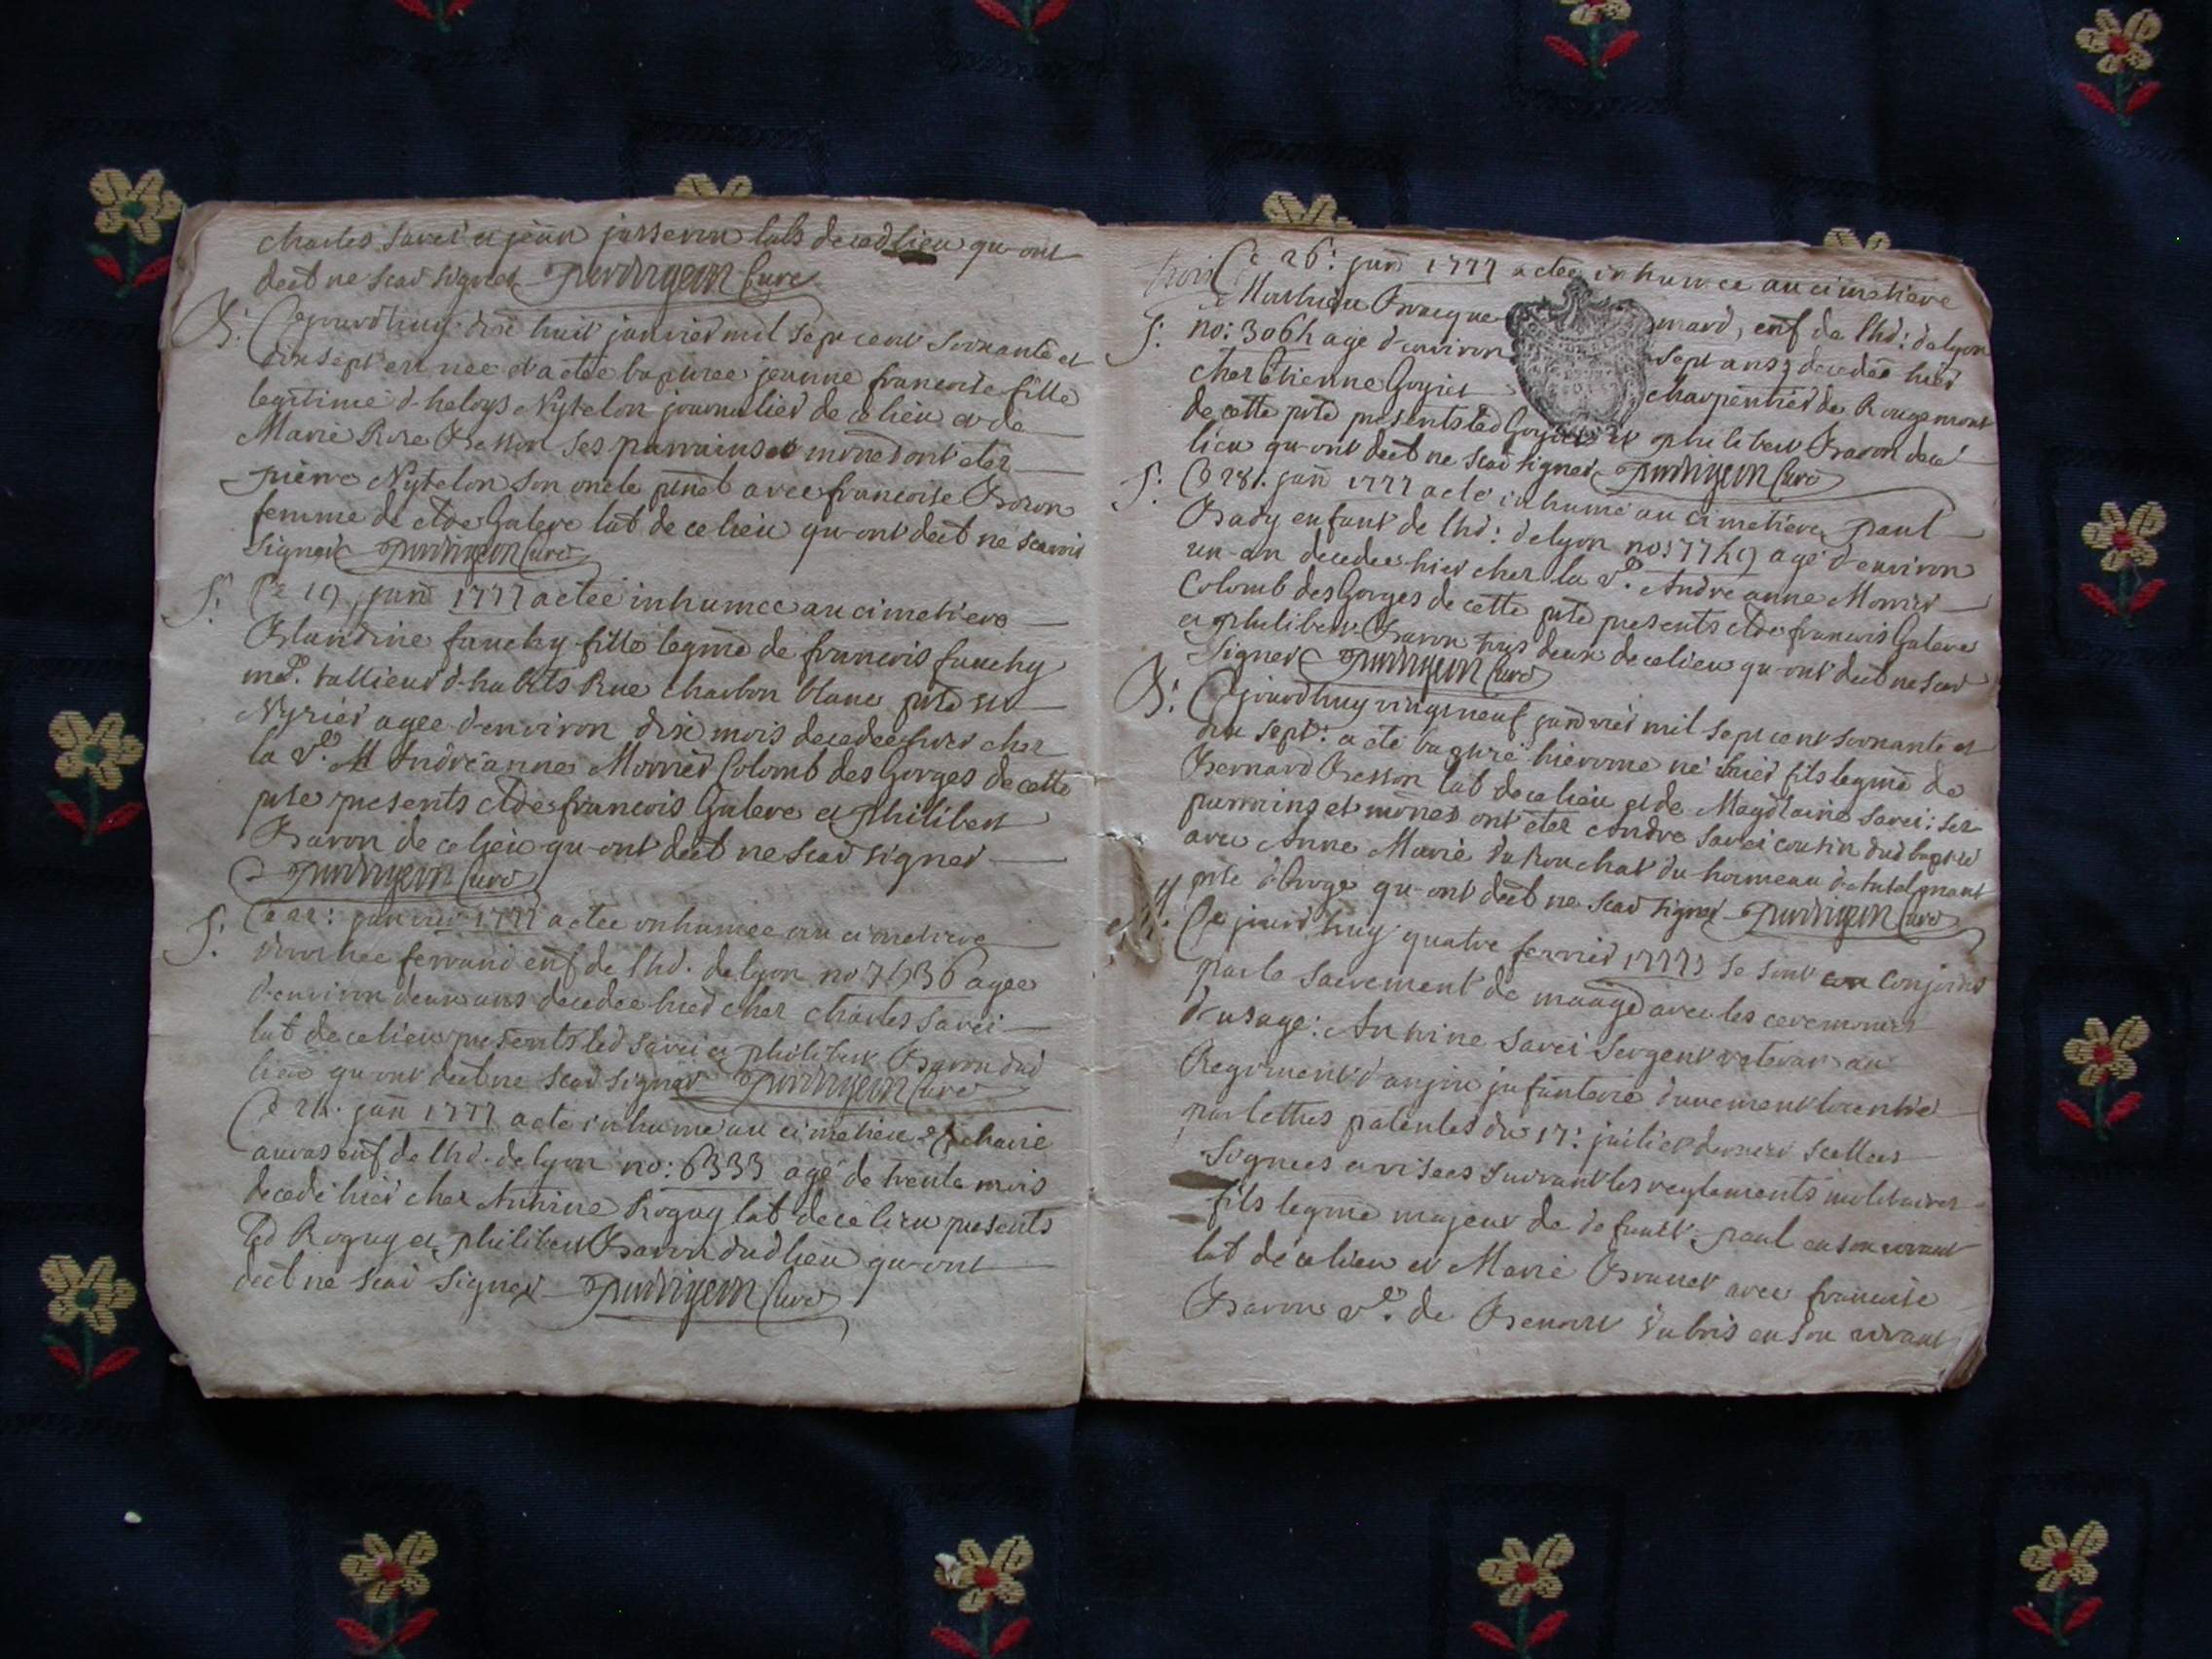 charles savei et jean josseron lab de ced lieu qu ont
declt ne scav signer curé
B: Cejourdhuy dix huit janvier mil sept cent soixante et
dix sept est née et a étée baptisée jeanne francoise fille
legitime d heloys Nytelon journalier de ce lieu et de
Marie Rose Besson ses parrains et mone ont étez
pierre Nytelon son oncle avec francoise Boron
femme de Galere lab de ce lieu qu ont declt ne scavoir
signer curé
S: Ce 19 janr 1777 a étée inhumée au cimetiere
Blandine fauchy fille legme de francois fauchy
md. tallieur d habits Rue charbon blanc pss st
Nyzier agee d environ dix mois decedee hier chez
la ve. Andréanne Monier Colomb des Gorges de cette
psse presents francois Galere et philibert
Baron de ce lieu qu ont declt ne scav signer
curé
S: Ce 22: janvier 1777 a étée inhumée au cimetiere
ferrand enf de lhd. de lyon no 7936 agee
d environ deux ans decedee hier chez charles savei
lab de ce lieu presents led savei et philibert Baron dud
lieu qu ont declt ne scav signer curé
Ce 24. janr 1777 a été inhumé au cimetiere
enf de lhd. de lyon no: 6333 agé de trente mois
decedé hier chez Anthine Roguy lab de ce lieu presents
led Roguy et philibert Baron dud lieu qu ont
declt ne scav signer curé
Ce 26: janr 1777 a étée inhumée au cimetiere
S: mard, enf de lhd: de lyon
no: 3064 agé d environ sept ans decedée hier
chez Etienne Goyiet charpentier de Rougemont
de cette psse presents led Goyiet et philibert Baron de ce
lieu qu ont declt ne scav signer curé
S: Ce 28. janr 1777 a été inhumé au cimetiere paul
Bady enfant de lhd: de lyon no: 7749 agé d environ
un an decedee hier chez la ve. Andreanne Monier
Colomb des Gorges de cette psse presents francois Galere
et philibert Baron tous deux de ce lieu qu ont declt ne scav
signer curé
B: Cejourdhuy vingt neuf janvier mil sept cent soixante et
dix sept: a été baptisé hierome né hier fils legme de
Bernard Besson lab de ce lieu et de Magdlaine savei: ses
parrains et mones ont étez Andre savei cousin dud baptisé
avec Anne Marie du hameau
psse qu ont declt ne scav signer curé
Cejourdhuy quatre fevrier 1777 se sont conjoints
par le sacrement de avec les ceremonies
d usage: Anthine savei sergent veteran au
Regiment d anjou infanterie
par lettres patentes du 17: juillet dernier scellees
signees et visees suivant les reglements militaires
fils legme majeur de defunt paul en son vivant
lab de ce lieu et Marie Brunet avec francoise
Baron ve. de Benoit Dubois en son vivant